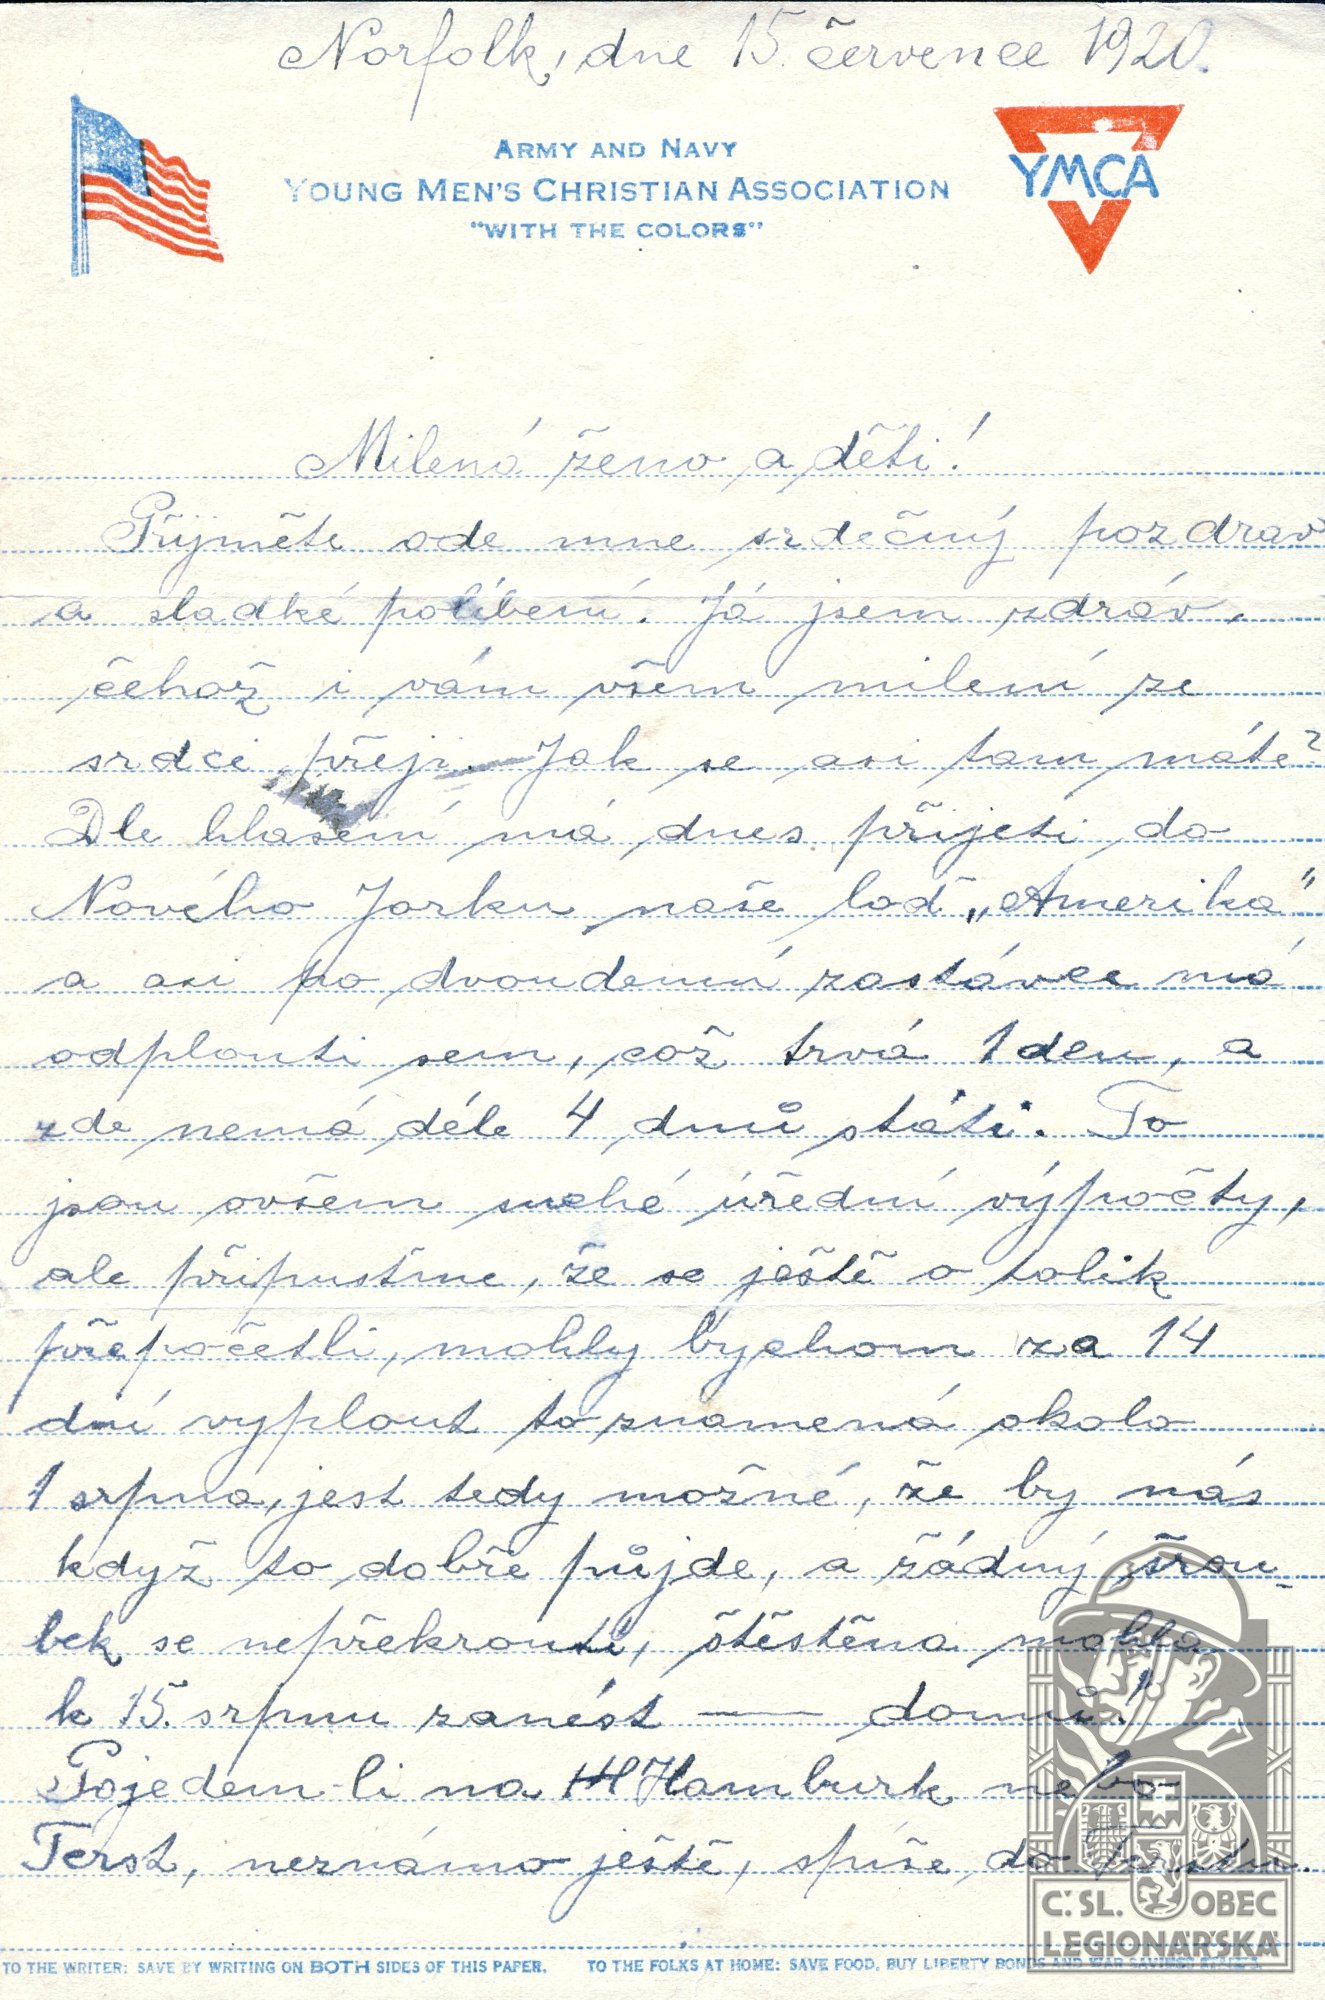 Norfolk, dne 15. července 1920.
ARMY AND NAVY
YOUNG MEN'S CHRISTIAN ASSOCIATION
"WITH THE COLORS"
YMCA
Milená ženo a děti!
Přijměte ode mne srdečný pozdrav
a sladké políbení. Já jsem zdráv,
čehož i vám všem milení ze
srdci přeji. Jak se asi tam máte?
Dle hlasení má dnes přijeti do
Nového Jorku naše loď „Amerika"
a asi po dvoudenní zastávce má
odplouti sem, což trvá 1 den, a
zde nemá déle 4 dnů státi. To
jsou ovšem suché úřední výpočty,
ale připustme, že se ještě o tolik
přepočetli, mohly bychom za 14
dní vyplout to znamená okolo
1 srpna, jest tedy možné, že by nás
když to dobře půjde, a řádný šrou-
bek se nepřekroutí, štěstěna mohla
k 15. srpnu zanést — domů!
Pojedem-li na Hamburk nebo
Terst, neznámo ještě, spíše do Terstu.
TO THE WRITER: SAVE BY WRITING ON BOTH SIDES OF THIS PAPER. TO THE FOLKS AT HOME: SAVE FOOD, BUY LIBERTY BONDS AND WAR SAVINGS STAMPS.
Č. SL. OBEC
LEGIONÁŘSKÁ